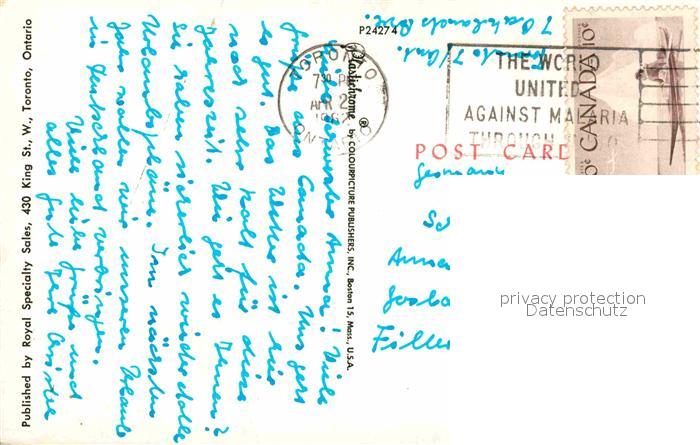 Published by Royal Specialty Sales, 430 King St., W., Toronto, Ontario
P24274
Plastichrome ® by COLOURPICTURE PUBLISHERS, INC., Boston 15, Mass., U.S.A.
Anna! Viele
Grüße aus Canada. Uns geht
es gut. Das Wetter ist hier
noch sehr kalt für diese
Jahreszeit. Wie geht es Ihnen?
Sie haben sicherlich wieder tolle
Urlaubspläne. Im nächsten
Jahr wollen wir unseren Urlaub
in Deutschland verbringen.
Viele liebe Grüße und
alles Gute Ihre
7
Toronto 7/Ont.
TORONTO
7 PM
APR 2
1962
ONTARIO
THE WORLD
UNITED
AGAINST MALARIA
THROUGH
CANADA 10¢
POST CARD
Germany
Anna
privacy protection
Datenschutz